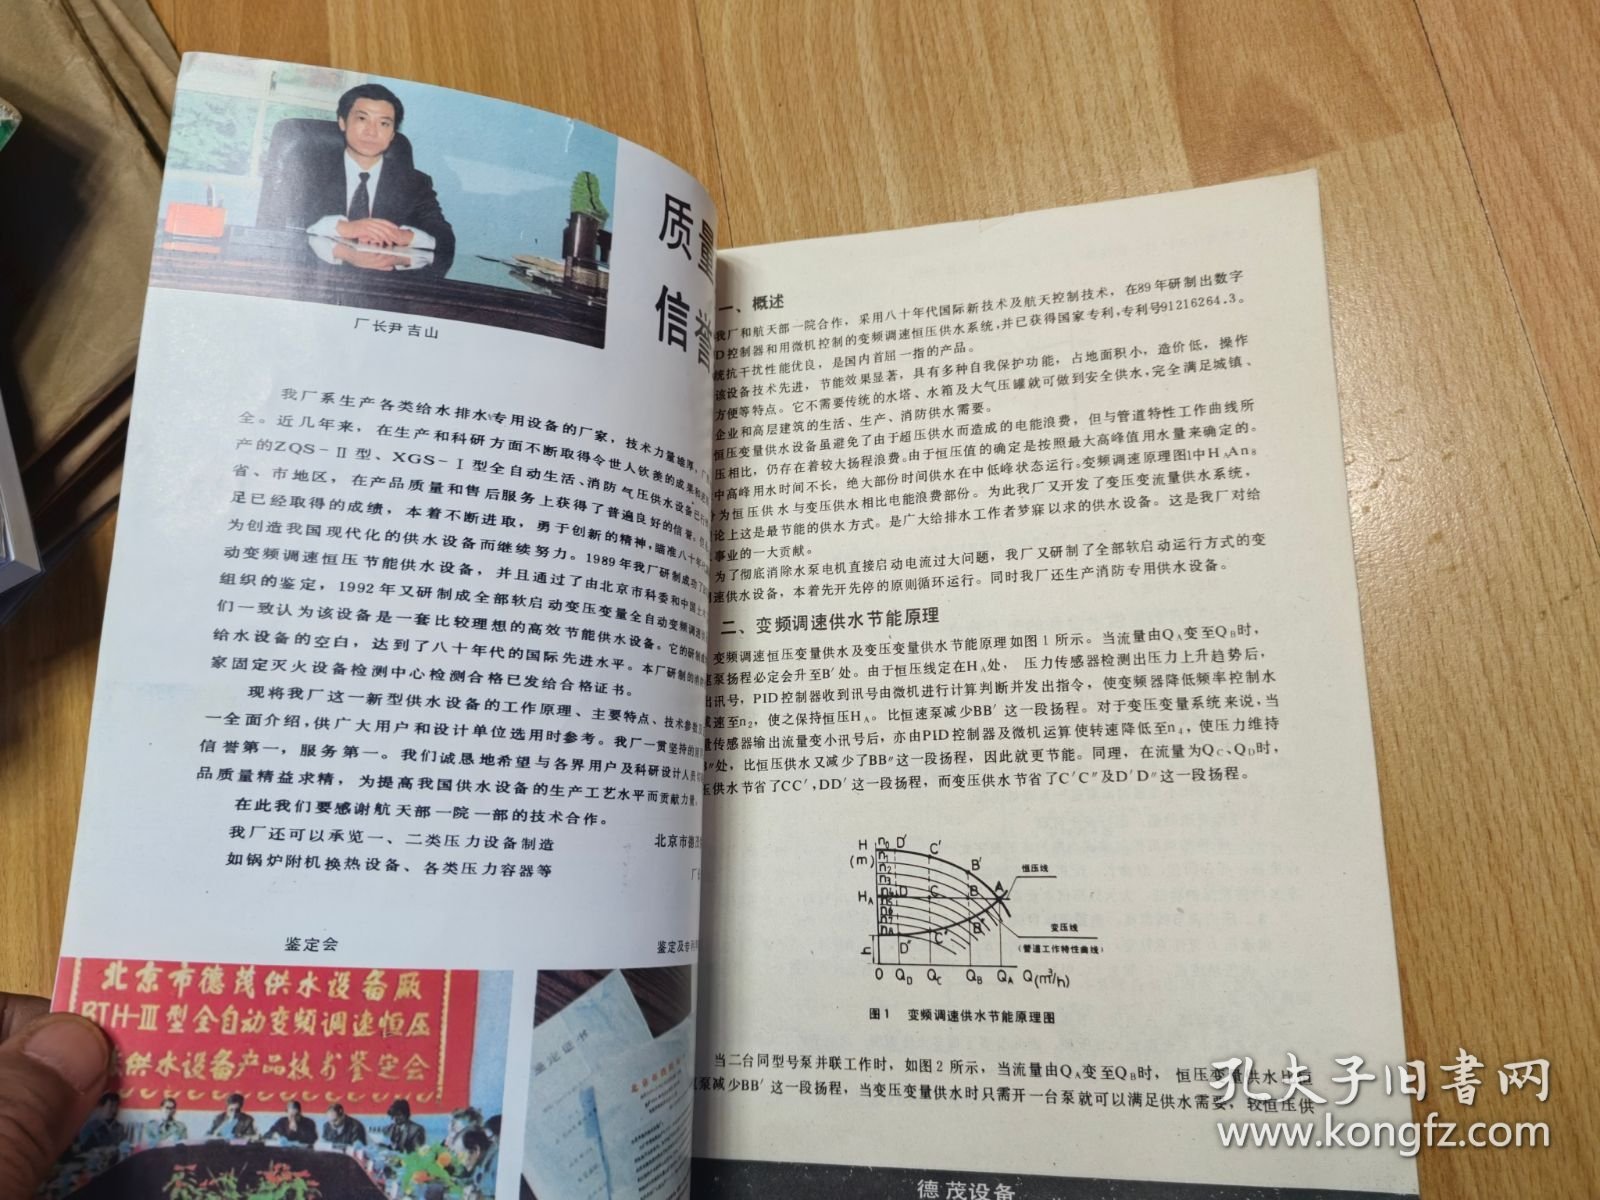 质量
信誉
厂长尹吉山
我厂系生产各类给水排水专用设备的厂家，技术力量雄厚，
全。近几年来，在生产和科研方面不断取得令世人钦羡的成果和
产的ZQS-II型、XGS-I型全自动生活、消防气压供水设备已行
省、市地区，在产品质量和售后服务上获得了普遍良好的信誉。
足已经取得的成绩，本着不断进取，勇于创新的精神，瞄准八十年代
为创造我国现代化的供水设备而继续努力。1989年我厂研制成功了
动变频调速恒压节能供水设备，并且通过了由北京市科委和中国土
组织的鉴定，1992年又研制成全部软启动变压变量全自动变频调速
们一致认为该设备是一套比较理想的高效节能供水设备。它的研制
给水设备的空白，达到了八十年代的国际先进水平。本厂研制的消
家固定灭火设备检测中心检测合格已发给合格证书。
现将我厂这一新型供水设备的工作原理、主要特点、技术参数
一全面介绍，供广大用户和设计单位选用时参考。我厂一贯坚持的
信誉第一，服务第一。我们诚恳地希望与各界用户及科研设计人员
品质量精益求精，为提高我国供水设备的生产工艺水平而贡献力量。
在此我们要感谢航天部一院一部的技术合作。
我厂还可以承览一、二类压力设备制造
北京市德茂
如锅炉附机换热设备、各类压力容器等
厂长
鉴定会
鉴定及专利
北京市德茂供水设备厰
BTH-III型全自动变频调速恒压
供水设备产品技术鉴定会
鉴定证书
一、概述
我厂和航天部一院合作，采用八十年代国际新技术及航天控制技术，在89年研制出数字
D控制器和用微机控制的变频调速恒压供水系统，并已获得国家专利，专利号91216264.3。
统抗干扰性能优良，是国内首屈一指的产品。
该设备技术先进，节能效果显著，具有多种自我保护功能，占地面积小，造价低，操作
方便等特点。它不需要传统的水塔、水箱及大气压罐就可做到安全供水，完全满足城镇、
企业和高层建筑的生活、生产、消防供水需要。
恒压变量供水设备虽避免了由于超压供水而造成的电能浪费，但与管道特性工作曲线所
压相比，仍存在着较大扬程浪费。由于恒压值的确定是按照最大高峰值用水量来确定的。
中高峰用水时间不长，绝大部份时间供水在中低峰状态运行。变频调速原理图1中HAAn8
为恒压供水与变压供水相比电能浪费部份。为此我厂又开发了变压变流量供水系统，
论上这是最节能的供水方式。是广大给排水工作者梦寐以求的供水设备。这是我厂对给
事业的一大贡献。
为了彻底消除水泵电机直接启动电流过大问题，我厂又研制了全部软启动运行方式的变
调速供水设备，本着先开先停的原则循环运行。同时我厂还生产消防专用供水设备。
二、变频调速供水节能原理
变频调速恒压变量供水及变压变量供水节能原理如图1所示。当流量由QA变至QB时，
泵扬程必定会升至B′处。由于恒压线定在HA处， 压力传感器检测出压力上升趋势后，
出讯号，PID控制器收到讯号由微机进行计算判断并发出指令，使变频器降低频率控制水
减速至n2，使之保持恒压HA。比恒速泵减少BB′这一段扬程。对于变压变量系统来说，当
量传感器输出流量变小讯号后，亦由PID控制器及微机运算使转速降低至n4，使压力维持
B″处，比恒压供水又减少了BB″这一段扬程，因此就更节能。同理，在流量为QC、QD时，
压供水节省了CC′，DD′这一段扬程，而变压供水节省了C′C″及D′D″这一段扬程。
H
(m)
n0 D′
n1
n2
n3
n4 D
n5
n6
n7
n8
C′
B′
A
HA
C
B
C″
B″
D″
h
恒压线
变压线
(管道工作特性曲线)
0 QD QC QB QA Q(m³/h)
图1 变频调速供水节能原理图
当二台同型号泵并联工作时，如图2所示，当流量由QA变至QB时，恒压变量供水比恒
泵减少BB′这一段扬程，当变压变量供水时只需开一台泵就可以满足供水需要，较恒压供
德茂设备
孔夫子旧書网
www.kongfz.com